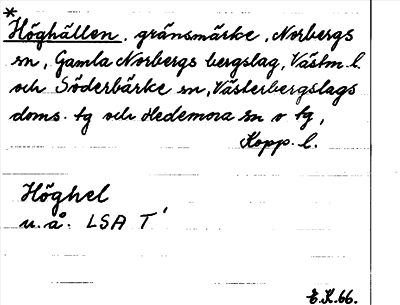 *
Höghällen. gränsmärke, Norbergs
sn, Gamla Norbergs bergslag, Västm. l.
och Söderbärke sn, Västerbergslags
doms. tg och Hedemora sn o tg,
Kopp. l.
Höghel
u. å. LSA T'
E.K.66.